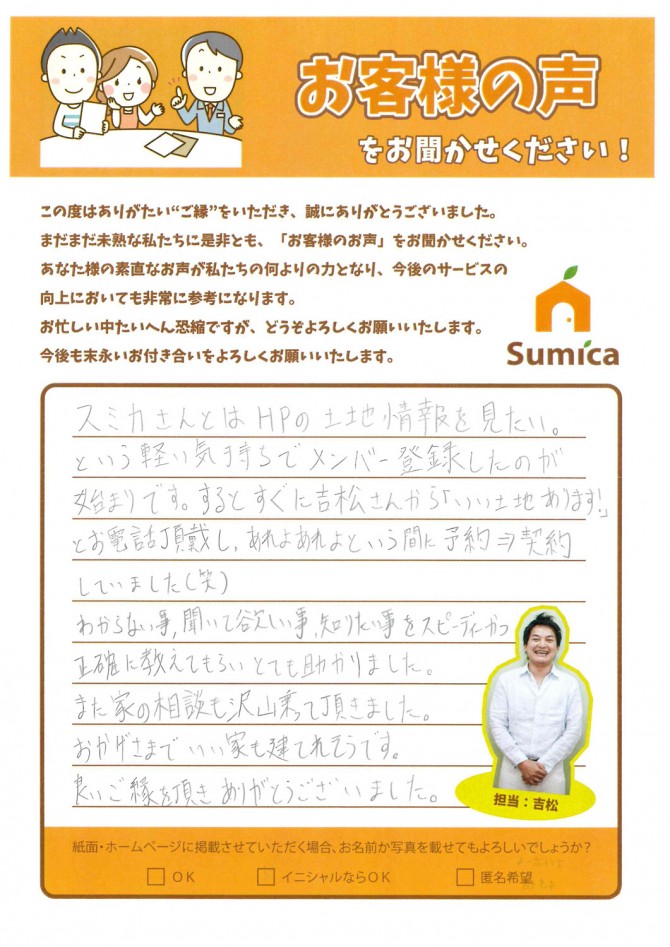 お客様の声
をお聞かせください！
この度はありがたい“ご縁”をいただき、誠にありがとうございました。
まだまだ未熟な私たちに是非とも、「お客様のお声」をお聞かせください。
あなた様の素直なお声が私たちの何よりの力となり、今後のサービスの
向上においても非常に参考になります。
お忙しい中たいへん恐縮ですが、どうぞよろしくお願いいたします。
今後も末永いお付き合いをよろしくお願いいたします。
Sumica
スミカさんとはHPの土地情報を見たい。
という軽い気持ちでメンバー登録したのが
始まりです。するとすぐに吉松さんから「いい土地あります!」
とお電話頂戴し、あれよあれよという間に予約⇒契約
していました(笑)
わからない事,聞いて欲しい事,知りたい事をスピーディーかつ
正確に教えてもらいとても助かりました。
また家の相談も沢山乗って頂きました。
おかげさまでいい家も建てれそうです。
良いご縁を頂きありがとうございました。
担当：吉松
紙面・ホームページに掲載させていただく場合、お名前か写真を載せてもよろしいでしょうか？
OK
イニシャルならOK
匿名希望